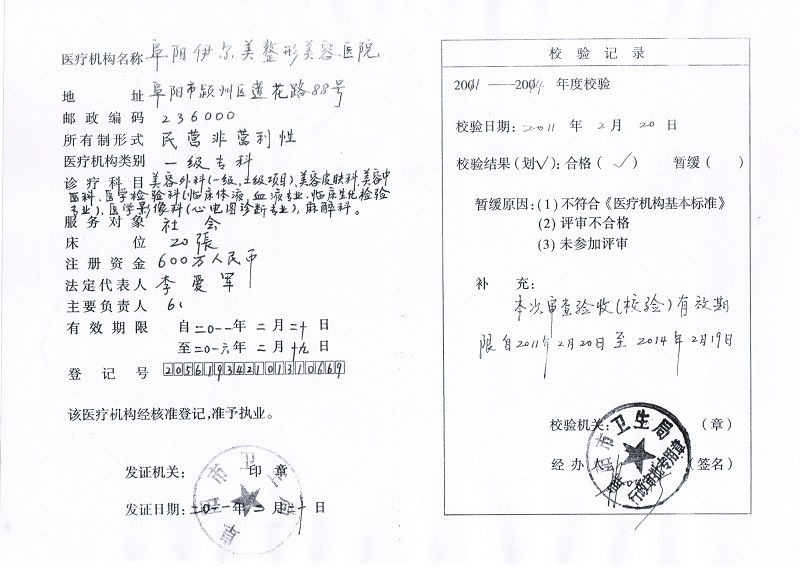 医疗机构名称 阜阳伊尔美整形美容医院
地 址 阜阳市颍州区莲花路88号
邮政编码 236000
所有制形式 民营非营利性
医疗机构类别 一级专科
诊疗科目 美容外科(一级、二级项目)、美容皮肤科、美容中
医科、医学检验科(临床体液、血液专业、临床生化检验
专业)、医学影像科(心电图诊断专业)、麻醉科。
服务对象 社会
床 位 20張
注册资金 600万人民币
法定代表人 李爱军
主要负责人 61
有效期限 自二0一一年二月二十日
至二0一六年二月十九日
登记号 2056193421013106 69
该医疗机构经核准登记,准予执业。
发证机关: 印章
发证日期:二0一一年二月二十日
阜阳市卫生局
校验记录
2011——2014年度校验
校验日期:2011年2月20日
校验结果(划√):合格(√) 暂缓( )
暂缓原因:(1)不符合《医疗机构基本标准》
(2)评审不合格
(3)未参加评审
补 充:
本次审查验收(校验)有效期
限自2011年2月20日至2014年2月19日
校验机关: (章)
经办人: (签名)
阜阳市卫生局
行政审批专用章